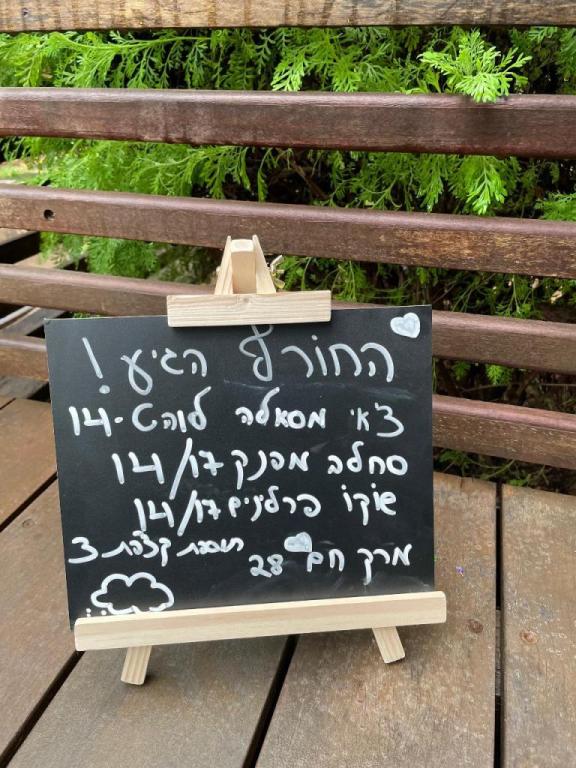 החורף הגיע!
צ'אי מסאלה לוהט-14
סחלב מפנק 14/17
שוקו פרלינים 14/17
מרק חם 28
תוספת קצפת 3